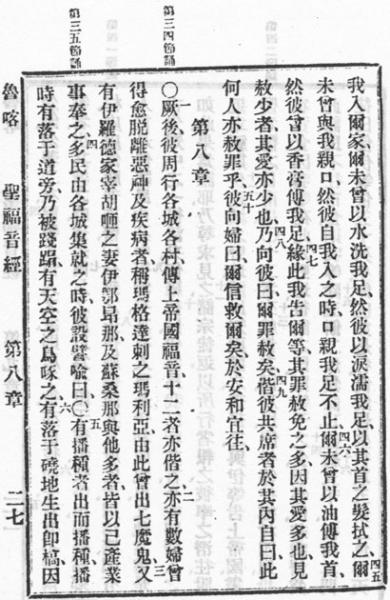 我入爾家爾未曾以水洗我足然彼以淚濡我足以其首之髮拭之四五爾
未曾與我親口然彼自我入之時口親我足不止四六爾未曾以油傅我首
然彼曾以香膏傅我足四七緣此我告爾等其罪赦免之多因其愛多也見
赦少者其愛亦少也四八乃向彼曰爾罪赦矣四九偕彼共席者於其內自曰此
何人亦赦罪乎五十彼向婦曰爾信救爾矣於安和宜往
第八章
第三四節誦
〇一厥後彼周行各城各村傳上帝國福音十二者亦偕之二亦有數婦曾
得愈脫離惡神及疾病者稱瑪格達剌之瑪利亞由此曾出七魔鬼三又
有伊羅德家宰胡咂之妻伊鄂昻那及蘇桑那與他多者皆以己產業
第三五節誦
事奉之四多民由各城集就之時彼設譬喻曰〇五有播種者出而播種播
時有落于道旁乃被踐蹋有天空之鳥啄之六有落于磽地生出卽槁因
魯喀 聖福音經 第八章 二七